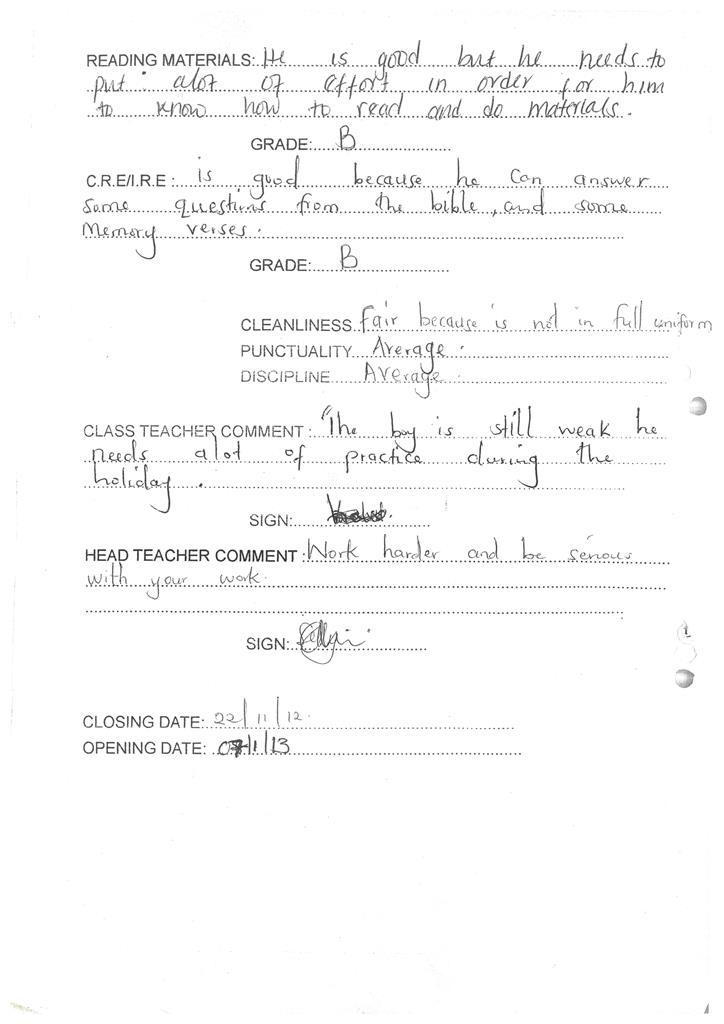 READING MATERIALS: He is good but he needs to
put alot of effort in order for him
to know how to read and do materials.
GRADE: B
C.R.E/I.R.E : is good because he Can answer
Some questions from the bible, and some
Memory verses.
GRADE: B
CLEANLINESS Fair because is not in full uniform
PUNCTUALITY Average.
DISCIPLINE Average
CLASS TEACHER COMMENT : "The boy is still weak he
needs alot of practice during the
holiday.
SIGN:
HEAD TEACHER COMMENT : Work harder and be serious
with your work.
SIGN:
CLOSING DATE: 22/11/12.
OPENING DATE: 07/1/13